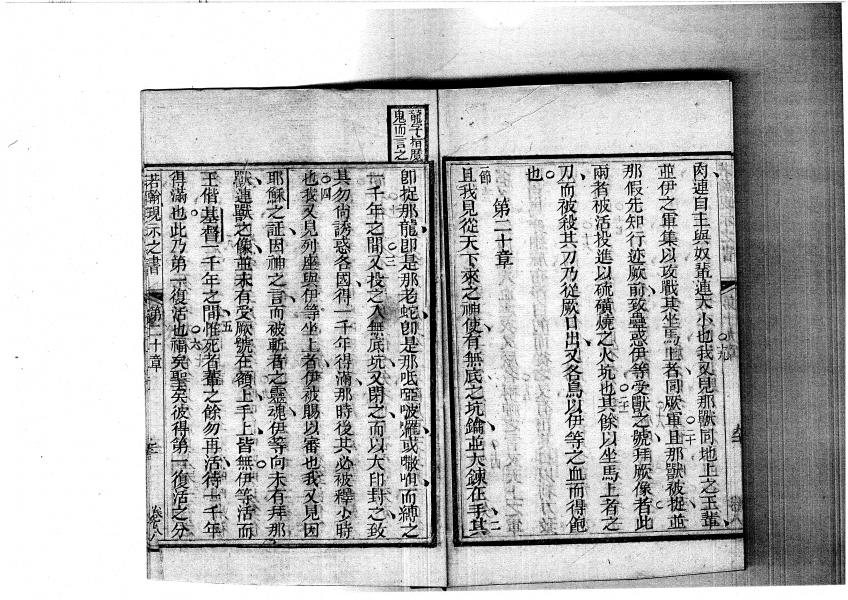 肉連自主與奴輩連大小也我又見那獸同地上之王輩
並伊之軍集以攻戰其坐馬上者同厥軍且那獸被捉並
那假先知行迹厥前致蠱惑伊等受獸之號拜厥像者此
兩者被活投進以硫磺燒之火坑也其餘以坐馬上者之
刀而被殺其刀乃從厥口出又各鳥以伊等之血而得飽
也
第二十章
一節
且我見從天下來之神使有無底之坑鑰並大鍊在手其
二
龍字指魔
鬼而言之
卽捉那龍卽是那老蛇卽是那㖕啞啵囉或囇咀而縛之
一千年之間又投之入無底坑又閉之而以大印封之致
其勿尚誘惑各因得一千年得滿那時後其必被釋小時
也我又見列座與伊等坐上者伊被賜以審也我又見因
耶穌之証因神之言而被斬者之靈魂伊等向未有拜那
獸連獸之像並未有受厥號在額上手上皆無伊等活而
王偕基督一千年之間惟死者輩之餘勿再活待一千年
得滿也此乃第一復活也福矣聖矣彼得第一復活之分
若翰現示之書
第二十章